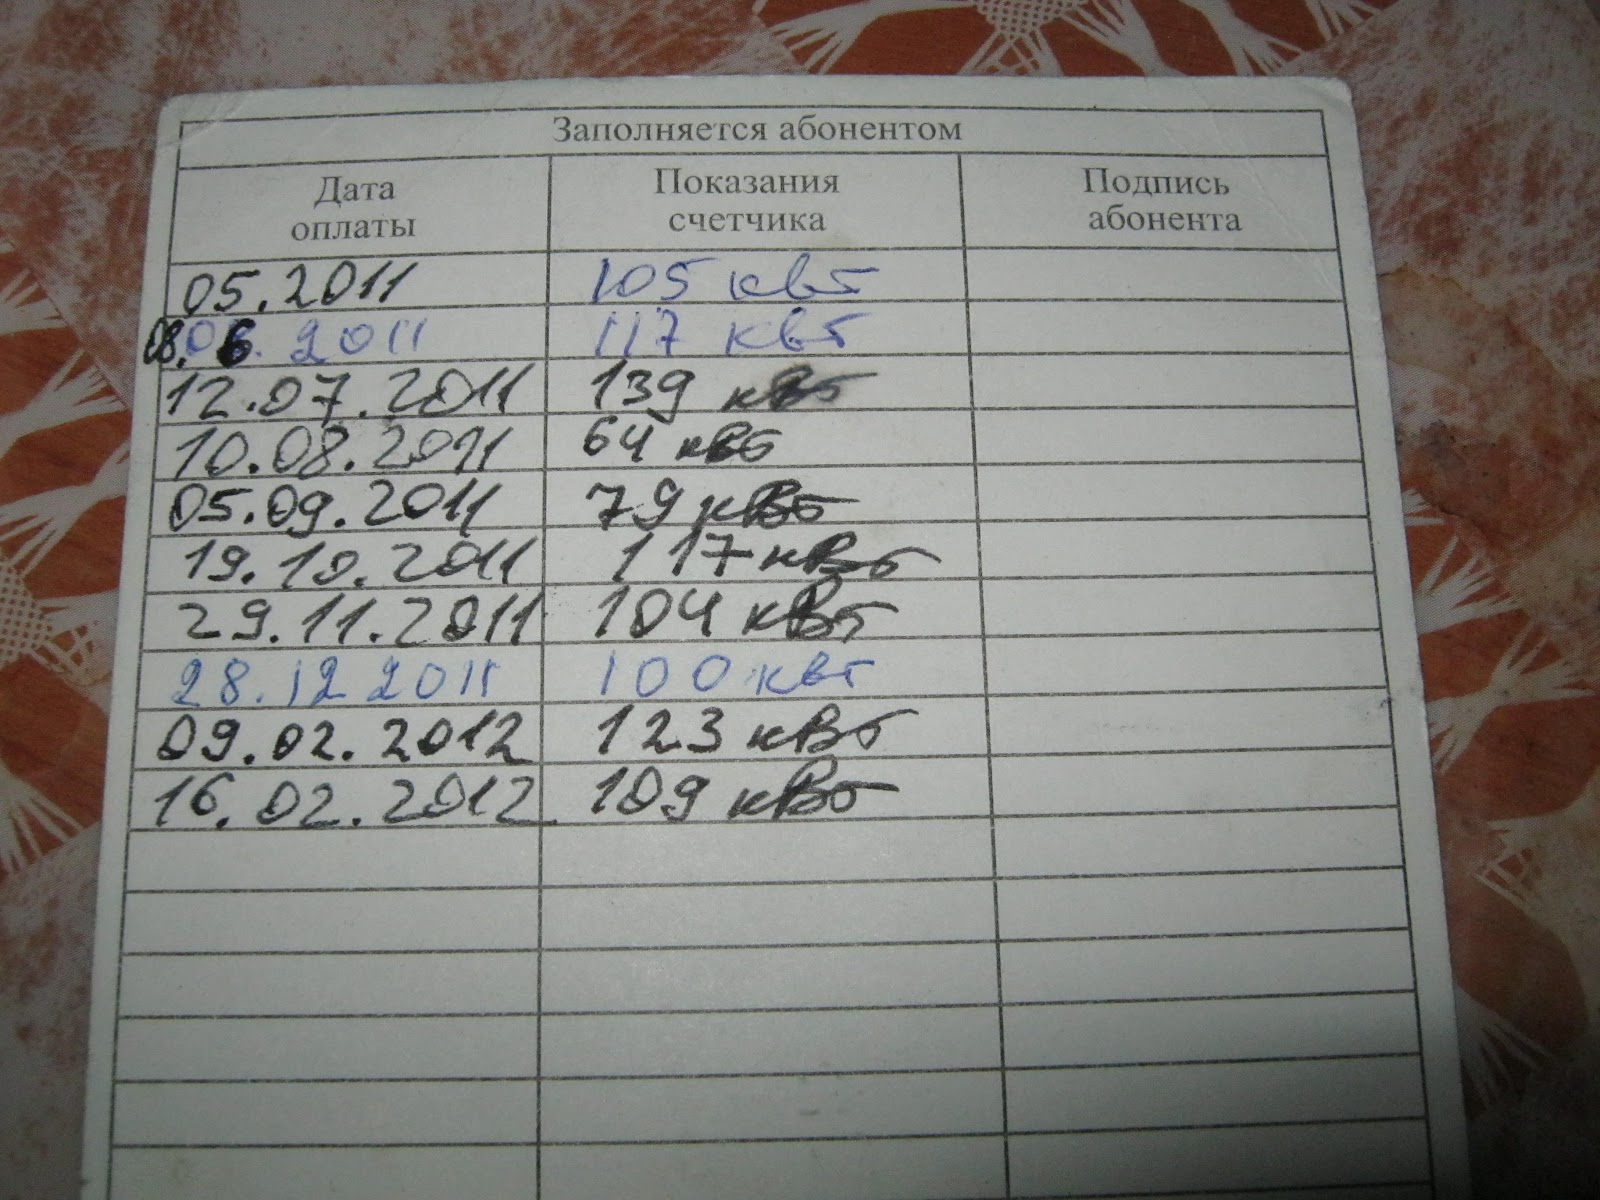 Заполняется абонентом
Дата оплаты Показания счетчика Подпись абонента
05.2011 105 квт
08.06.2011 117 квт
12.07.2011 139 кВт
10.08.2011 64 кВт
05.09.2011 79 кВт
19.10.2011 117 кВт
29.11.2011 104 кВт
28.12 2011 100 квт
09.02.2012 123 кВт
16.02.2012 109 кВт